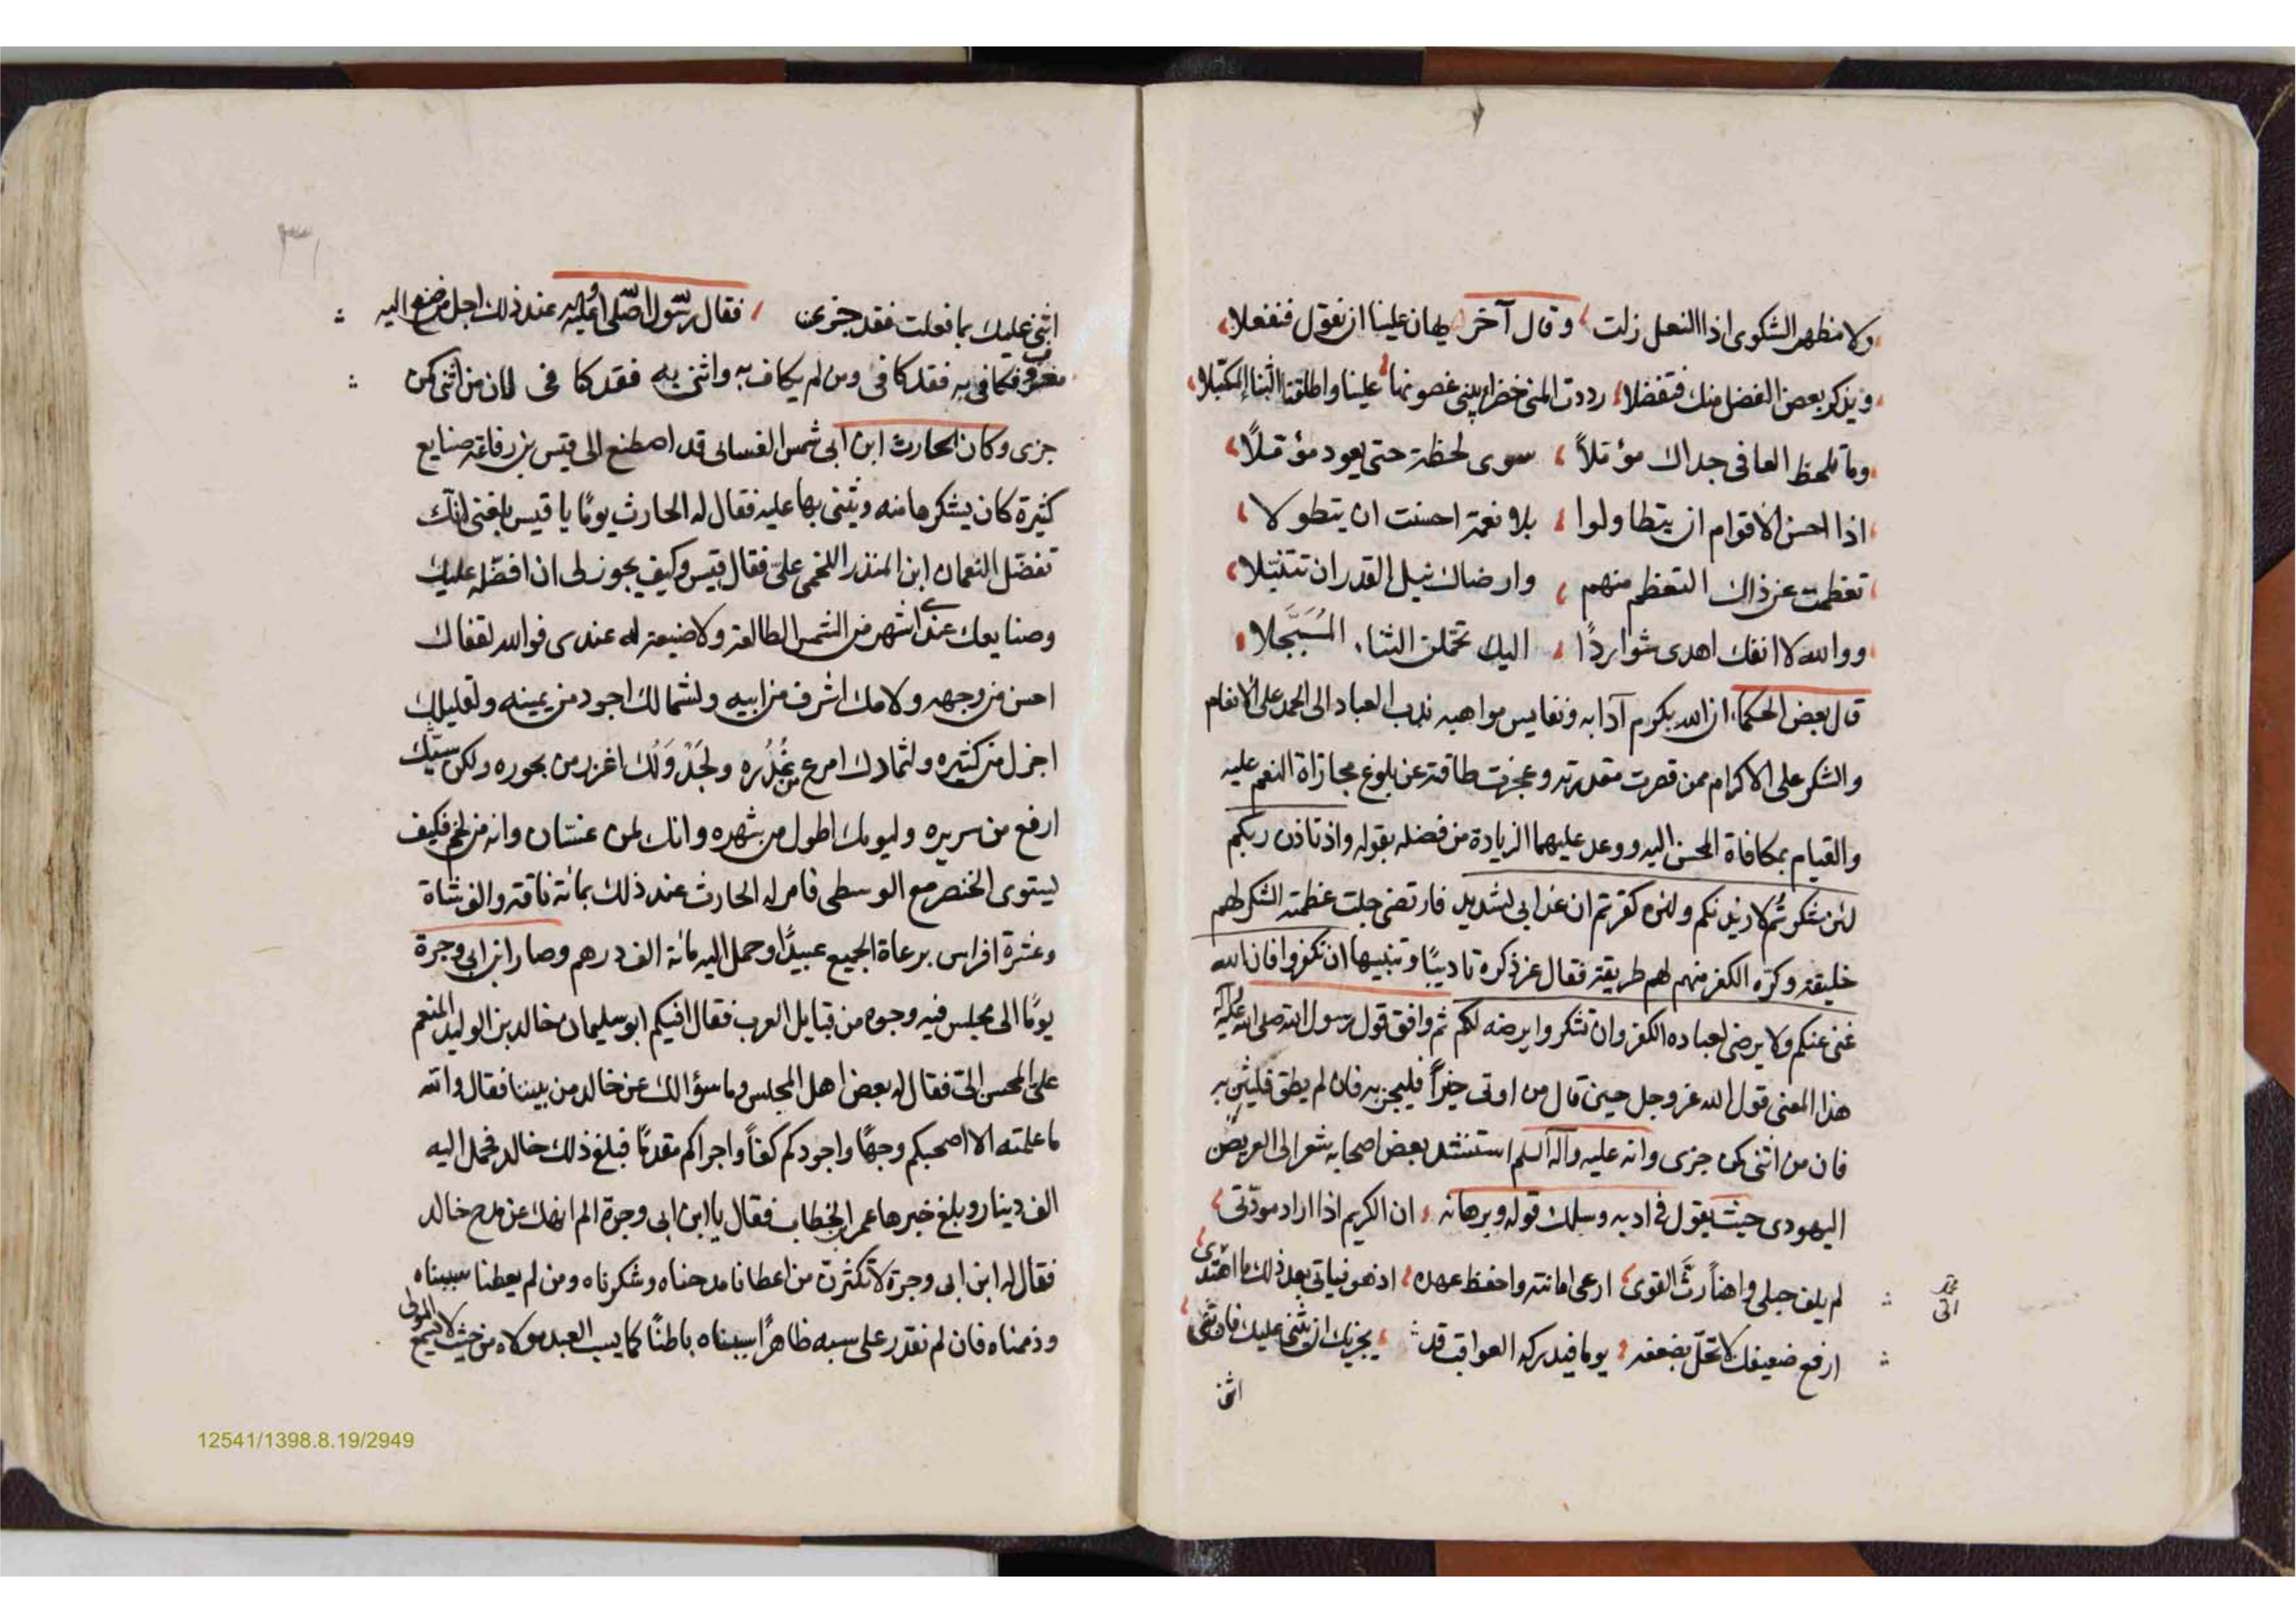 ولا مظهر الشكوى اذا النعل زلت وقال آخر يهان علينا ان نقول فنفعلا
ويذكر بعض الفضل منك فتفضلا رددت المنى خضرا يثنى غصونها علينا واطلقت الثنا المكبلا
وما يلحظ العافى جداك مؤملاً سوى لحظة حتى يعود مؤملاً
اذا احسن الاقوام ان يتطاولوا بلا نعمة احسنت ان يتطولا
تعظمت عن ذاك التعظم منهم وارضاك نيل القدر ان تتنبلا
ووالله لا انفك اهدى شوارداً اليك تحملن الثناء المُبَجَّلا
قال بعض الحكما ان الله بكرم آدابه ونفايس مواهبه ندب العباد الى الحمد على الانعام
والشكر على الاكرام ممن قصرت مقدرته وعجزت طاقته عن بلوغ مجازاة النعم عليه
والقيام بمكافاة المحسن اليه ووعد عليهما الزيادة من فضله بقوله واذ تاذن ربكم
لئن شكرتم لازيدنكم ولئن كفرتم ان عذابى لشديد فارتضى جلت عظمته الشكر لهم
خليقة وكره الكفر منهم لهم طريقة فقال عز ذكره تاديبًا وتنبيها ان تكفروا فان الله
غنى عنكم ولا يرضى لعباده الكفر وان تشكروا يرضه لكم ثم وافق قول رسول الله صلى الله عليه وآله
هذا المعنى قول الله عز وجل حين قال من اوتى خيراً فليجز به فان لم يطق فليثن به
فان من اثنى كمن جزى وانه عليه وآله السلم استنشد بعض اصحابه شعر الى العريض
اليهودى حيث يقول فى ادبه وسلمك قوله وبرهانه ان الكريم اذا اراد مودّتى
لم يلف حبلى واهناً رثّ القوى ارعى امانته واحفظ عهده ادنو نياتى بعد ذلك ما اهتدى
ارفع ضعيفك لا تحلّ بضعفه يوما فيدركه العواقب قد يجزيك ان يثنى عليك فان ثنى
اثن
اثنى عليك بما فعلت فقد جزى فقال رسول الله صلى الله عليه عند ذلك اجل من صنع اليه
معروف فكافى به فقد كافى ومن لم يكاف به واثنى به فقد كافى لان من اثنى كمن
جزى وكان الحارث ابن ابى شمس الغسانى قد اصطنع الى قيس بن رفاعة صنايع
كثيرة كان يشكرها منه ويثنى بها عليه فقال له الحارث يومًا يا قيس بلغنى انك
تفضّل النعمان ابن المنذر اللخمى علىّ فقال قيس وكيف يجوز لى ان افضّله عليك
وصنايعك عندى اشهر من الشمس الطالعة ولا ضيعة له عندى فوالله لقفاك
احسن من وجهه ولامك اشرف من ابيه ولشمالك اجود من يمينه ولقليلك
اجزل من كثيره ولثمادك امرع من غُدُره ولجَدْوَلُك اغزر من بحوره ولكرسيّك
ارفع من سريره وليومك اطول من شهره وانك لمن غسّان وانه من لخم فكيف
يستوى الخنصر مع الوسطى فامر له الحارث عند ذلك بمائة ناقة والف شاة
وعشرة افراس برعاة الجميع عبيدًا وحمل اليه مائة الف درهم وصار ابن ابى وجرة
يومًا الى مجلس فيه وجوه من قبايل العرب فقال افيكم ابو سليمان خالد بن الوليد المنعم
علىّ المحسن الىّ فقال له بعض اهل المجلس وما سؤالك عن خالد من بيننا فقال والله
ما علمته الا اصحبكم وجهًا واجودكم كفاً واجراكم مقدمًا فبلغ ذلك خالد فحمل اليه
الف دينار وبلغ خبرها عمر بن الخطاب فقال يا ابن ابى وجرة الم انهك عن مدح خالد
فقال له ابن ابى وجرة لا تكثرن من اعطانا مدحناه وشكرناه ومن لم يعطنا سببناه
وذممناه فان لم نقدر على سبه ظاهراً سببناه باطنًا كما يسب العبد مولاه من حيث لا يسمع المولى
12541/1398.8.19/2949